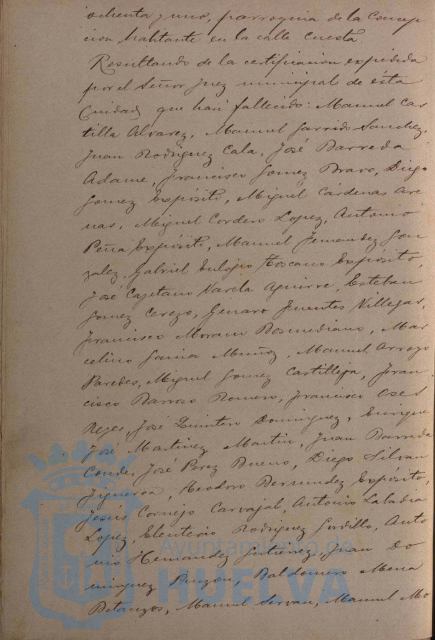 ochenta y uno, parroquia de la Concep
cion habitante en la calle Cuesta
Resultando de la certificacion expedida
por el Señor Juez municipal de esta
Ciudad que han fallecido: Manuel Cas
tilla Alvarez, Manuel Garrido Sanchez,
Juan Rodriguez Cala, José Barreda
Adame, Francisco Gomez Bravo, Diego
Gomez Expósito, Miguel Cárdenas Are
nas, Miguel Cordero Lopez, Antonio
Peña Expósito, Manuel Fernandez Gon
zalez, Gabriel Eulogio Toscano Expósito,
José Cayetano Varela Aguirre, Esteban
Gomez Cerezo, Genaro Fuentes Villegas,
Francisco Moreno Bosmediano, Mar
celino Garcia Muñoz, Manuel Arroyo
Paredes, Miguel Gomez Castilleja, Fran
cisco Barroso Romero, Francisco
Reyes, José Quintero Dominguez, Enrique
José Martinez Martin, Juan Barreda
Conde, José Perez Bueno, Diego Silvan
Figueroa, Teodoro Bermudez Expósito,
Jesús Cornejo Carvajal, Antonio Labadia
Lopez, Eleuterio Rodriguez Gordillo, Anto
nio Hernandez Gutierrez, Juan Do
minguez Pinzon, Baldomero Mena
Betanzos, Manuel Servan, Manuel Mo
Ayuntamiento de
HUELVA